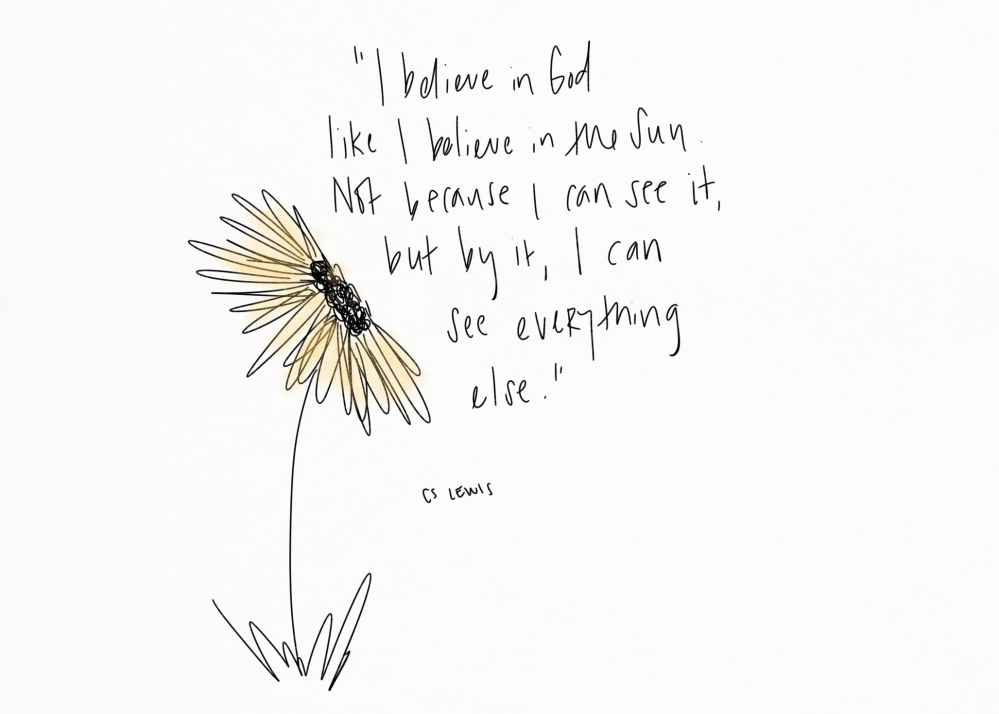 "I believe in God
like I believe in the Sun.
Not because I can see it,
but by it, I can
see everything
else."
CS LEWIS